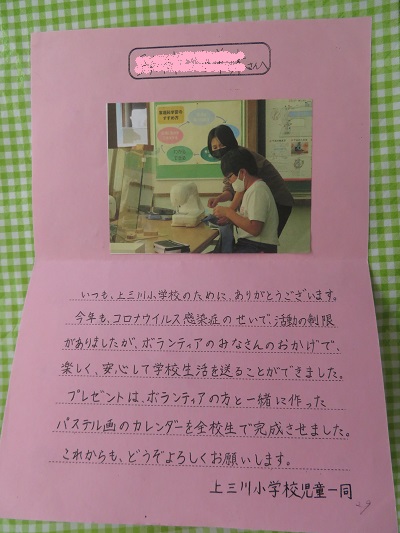 さんへ
いつも、上三川小学校のために、ありがとうございます。
今年も、コロナウイルス感染症のせいで、活動の制限
がありましたが、ボランティアのみなさんのおかげで、
楽しく、安心して学校生活を送ることができました。
プレゼントは、ボランティアの方と一緒に作った
パステル画のカレンダーを全校生で完成させました。
これからも、どうぞよろしくお願いします。
上三川小学校児童一同